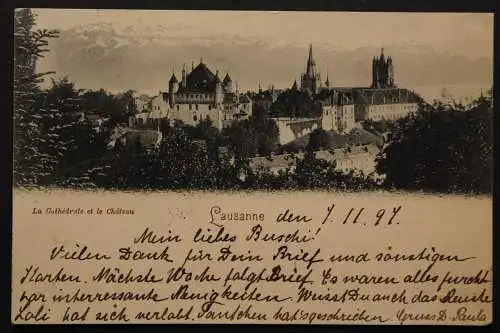 La Cathédrale et le Château
Lausanne den 7. 11. 97.
Mein liebes Buschi!
Vielen Dank für Dein Brief und sonstigen
Karten. Nächste Woche folgt Brief. Es waren alles furcht
bar interressante Neuigkeiten. Weisst Du auch das Reute
Loli hat sich verlobt. Täntchen hat's geschrieben. Gruss D. Paula